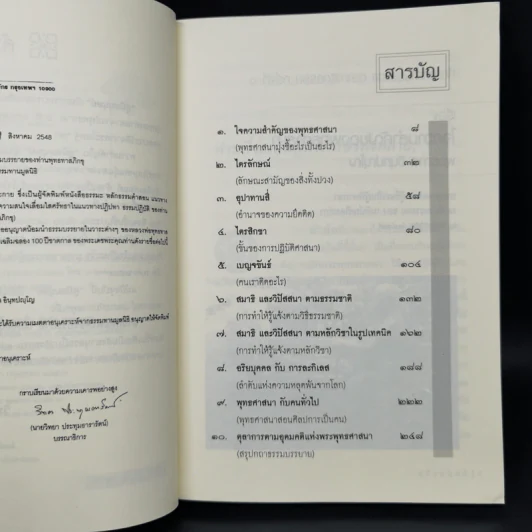 กรุงเทพฯ 10900
สิงหาคม 2548
บรรยายของท่านพุทธทาสภิกขุ
ธรรมทานมูลนิธิ
ได้รับความเมตตาอนุเคราะห์จากธรรมทานมูลนิธิ อนุญาตให้จัดพิมพ์
กราบเรียนมาด้วยความเคารพอย่างสูง
(นายวิทยา ประทุมธารารัตน์)
บรรณาธิการ
สารบัญ
๑. ใจความสำคัญของพุทธศาสนา ๘
(พุทธศาสนามุ่งชี้อะไรเป็นอะไร)
๒. ไตรลักษณ์ ๓๒
(ลักษณะสามัญของสิ่งทั้งปวง)
๓. อุปาทานสี่ ๕๘
(อำนาจของความยึดติด)
๔. ไตรสิกขา ๘๐
(ขั้นของการปฏิบัติศาสนา)
๕. เบญจขันธ์ ๑๐๔
(คนเราติดอะไร)
๖. สมาธิ และวิปัสสนา ตามธรรมชาติ ๑๓๒
(การทำให้รู้แจ้งตามวิธีธรรมชาติ)
๗. สมาธิ และวิปัสสนา ตามหลักวิชาในรูปเทคนิค ๑๖๒
(การทำให้รู้แจ้งตามหลักวิชา)
๘. อริยบุคคล กับ การละกิเลส ๑๘๘
(ลำดับแห่งความหลุดพ้นจากโลก)
๙. พุทธศาสนา กับคนทั่วไป ๒๒๒
(พุทธศาสนาสอนศิลปการเป็นคน)
๑๐. ตุลาการตามอุดมคติแห่งพระพุทธศาสนา ๒๔๘
(สรุปกถาธรรมบรรยาย)